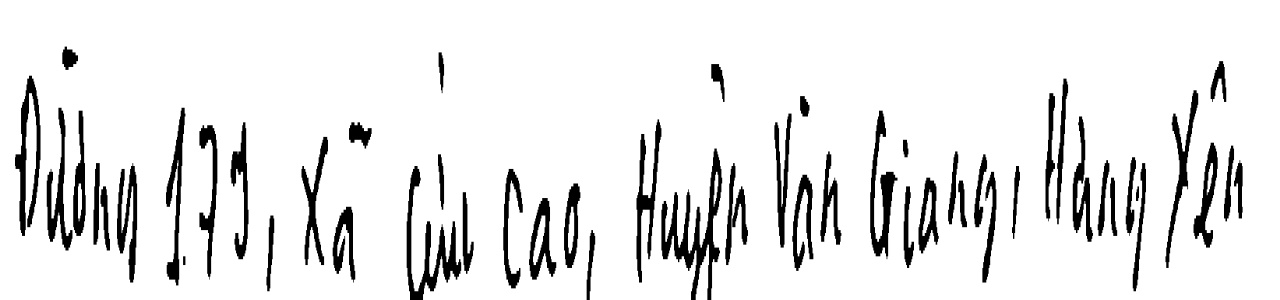 Đường 179, Xã Cửu Cao, Huyện Văn Giang, Hưng Yên